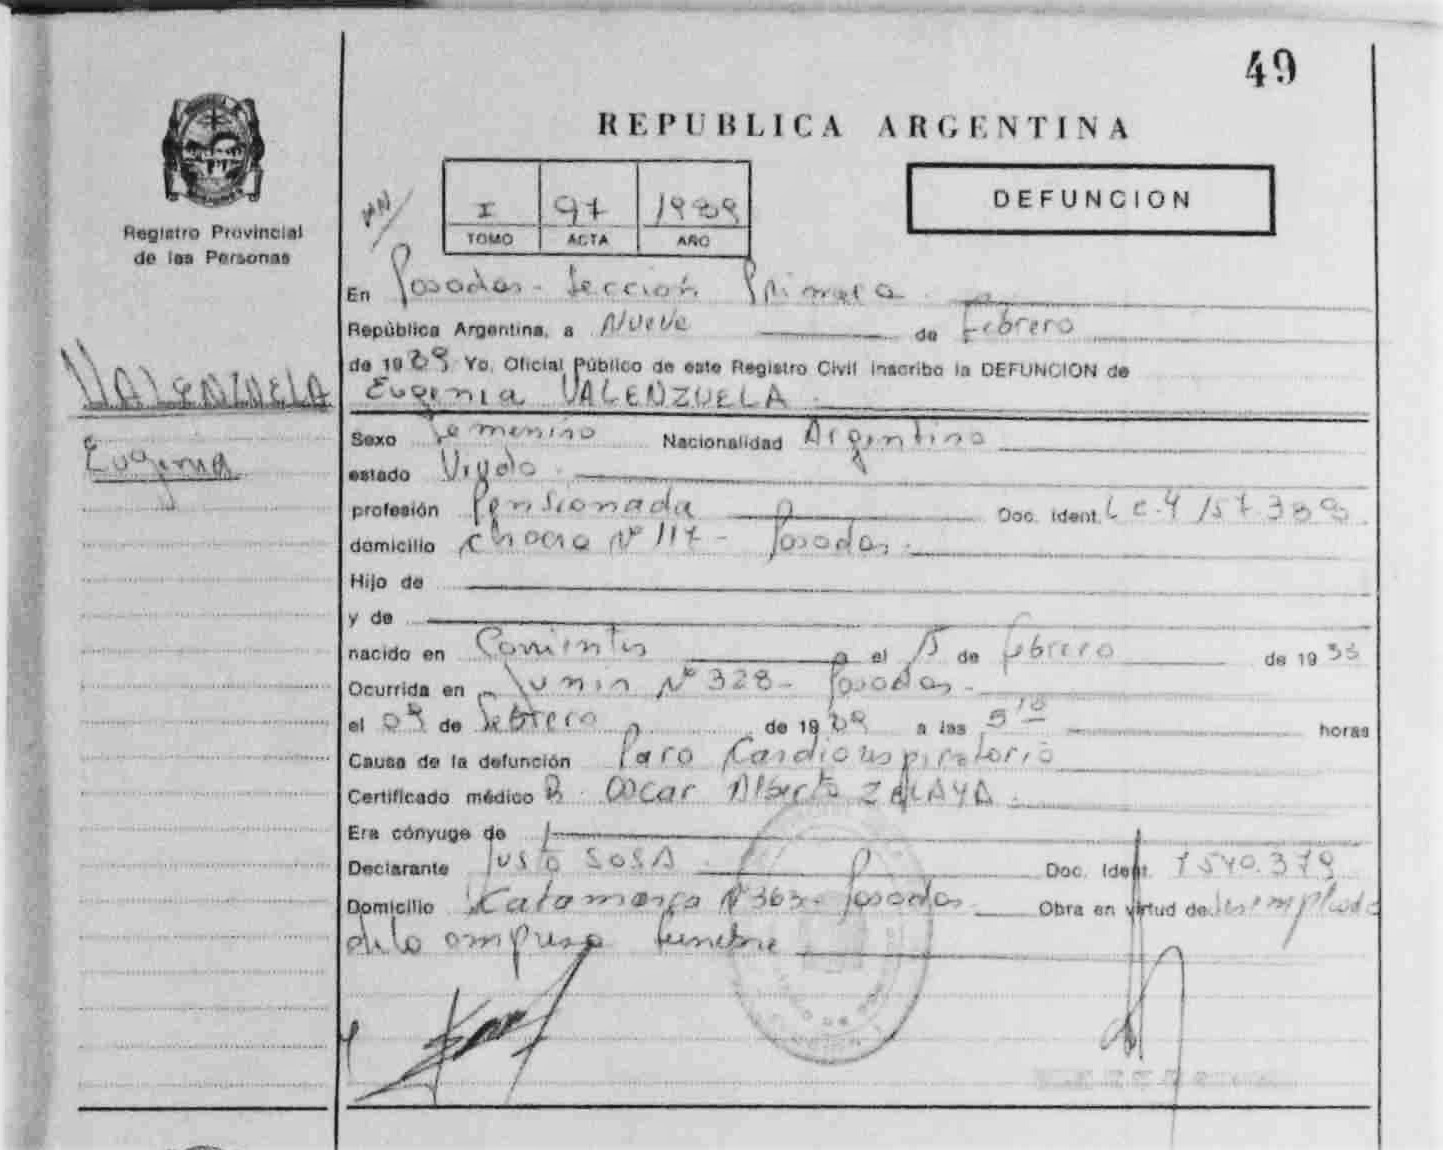 49
REPUBLICA ARGENTINA
DEFUNCION
I 97 1989
TOMO ACTA AÑO
Registro Provincial
de las Personas
En Posadas - Sección Primera
República Argentina, a Nueve de Febrero
de 1989 Yo, Oficial Público de este Registro Civil inscribo la DEFUNCION de
VALENZUELA
Eugenia VALENZUELA.
Eugenia
Sexo Femenino Nacionalidad Argentina
estado Viuda.
profesión Pensionada Doc. Ident. L C. 4 157.389
domicilio chacra Nº 117 - Posadas.
Hijo de
y de
nacido en Corrientes el 15 de febrero de 19
Ocurrida en Junin Nº 328 - Posadas.
el 09 de febrero de 1989 a las 5 10 horas
Causa de la defunción Paro Cardiorespiratorio
Certificado médico Oscar Alberto ZALAYA.
Era cónyuge de
Declarante Justo SOSA. Doc. Ident. 7 540.379
Domicilio Catamarca Nº 363 - Posadas. Obra en virtud de
de la empresa funebre